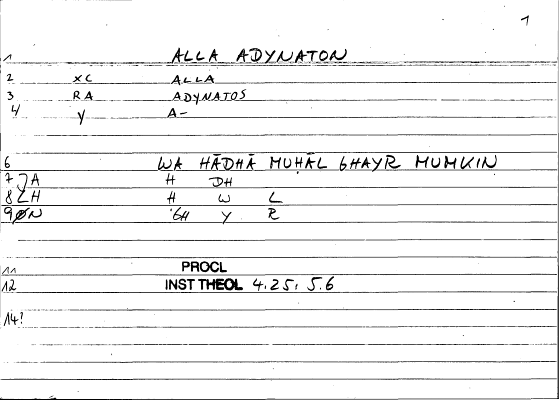 1
1 ALLA ADYNATON
2 XC ALLA
3 RA ADYNATOS
4 Y A-
6 WA HĀDHĀ MUHĀL GHAYR MUMKIN
7 A H DH
8 H H W L
9 N GH Y R
11 PROCL
12 INST THEOL 4.25; 5.6
14?